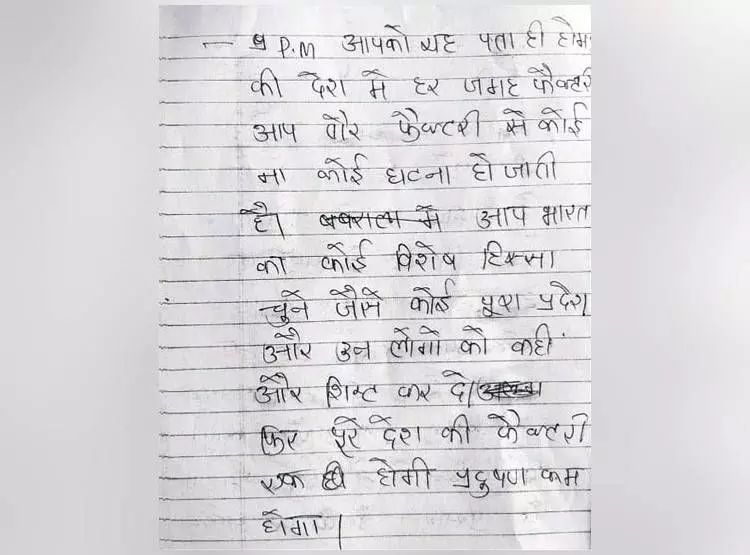 P.M आपको यह पता ही होगा
की देश मे हर जगह फैक्टरी
आप और फैक्टरी से कोई
ना कोई घटना हो जाती
है। आप भारत
का कोई विशेष हिस्सा
चुने जैसे कोई पूरा प्रदेश
और उन लोगो को कही
और शिफ्ट कर दे।
फिर पूरे देश की फैक्टरी
एक ही होगी प्रदुषण कम
होगा।